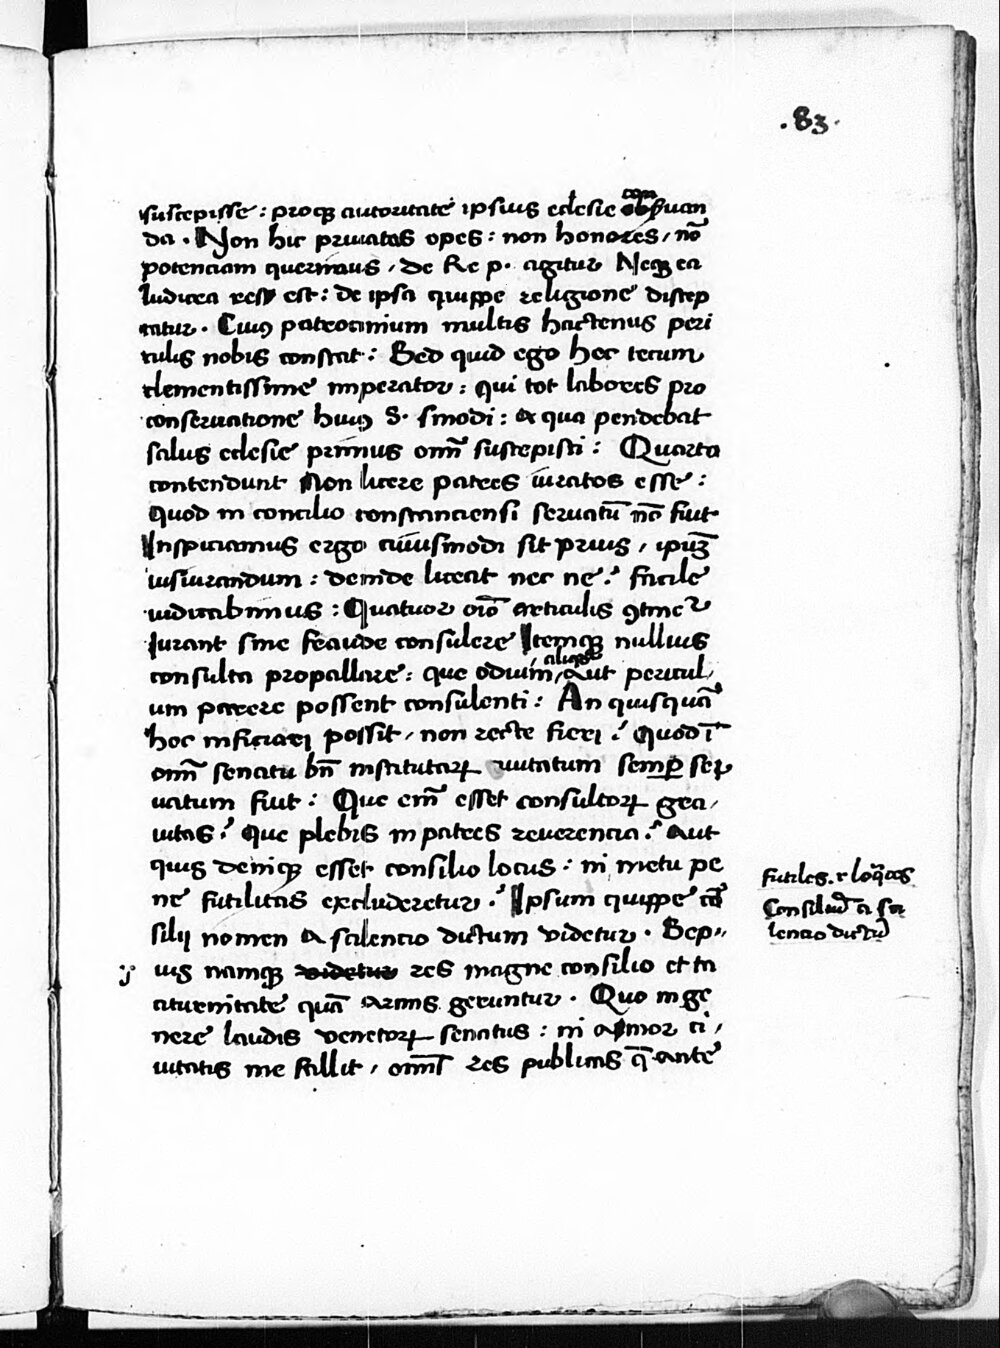 .83.
suscepisse : proqȝ autoritate ipsius eclesie con obẜuan
da . Non hic priuatas opes : non honores, nō
potenciam querimus , de Re p. agitur Neqȝ ea
ludicra res est : de ipsa quippe religione discep
tatur . Cuiꝰ patrocinium multis hactenus peri
culis nobis constat : Sed quid ego hec tecum
clementissime imperator : qui tot labores pro
conseruatione huiꝰ S. sinodi : a qua pendebat
salus eclesie primus om̄i suscepisti : Quarto
contendunt Non licere patres iuratos esse :
Quod in concilio constanciensi seruatū nō fuit
Inspiciamus ergo cuiusmodi sit prius , ipȝ
iusiurandum : deinde liceat nec ne ? facile
iudicabimus : Quatuor oīo articulis ꝯtinet᷑
Iurant sine fraude consulere Itemqȝ nullius
consulta propallare : que odium, aliqd Aut pericul,
um parere possent consulenti : An quisquā
hoc inficiari possit , non recte fieri ? Quod ī
om̄i senatu bn̄ institutorꝝ ciuitatum semꝑ ser
uatum fuit : Que em̄ esset consultorꝝ gra,
uitas ? Que plebis in patres reuerencia ? Aut
quis deniqȝ esset consilio locus : ni metu pe
ne futilitas excluderetur ? Ipsum quippe cō
silij nomen a scilencio dictum videtur . Sep,,
ius namqȝ videtur res magne consilio et ta
citurnitate quā armis geruntur . Quo in ge
nere laudis venetorꝝ senatus : ni amor ci,
uitatis me fallit , om̄s res publicas q̄ ante
futiles. r loq̄ces
Consiliū a sci
lencio dictū